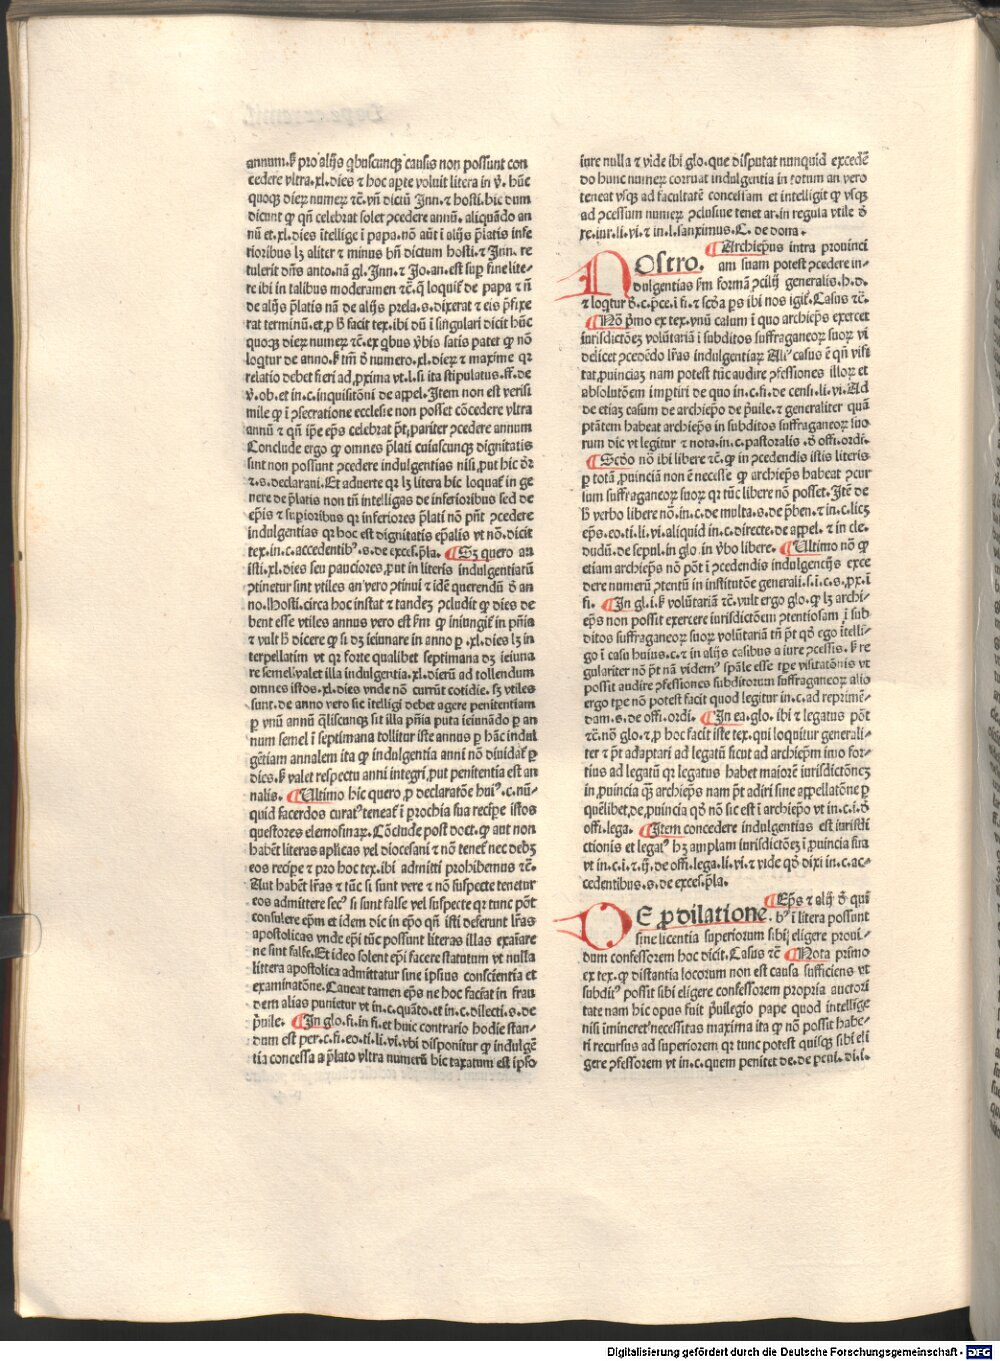 annum. k̄ pro alijs q̇buscunqꝫ causis non possunt con
cedere vltra .xl. dies ⁊ hoc apte voluit litera in v̄. hūc
quoqꝫ dieꝝ numeꝝ ⁊c̄. vn̄ dictū Inn. ⁊ hosti. hic dum
dicunt ꝙ qn̄ celebrat solet ꝯcedere annū. aliquādo an
nū et .xl. dies ītellige ī papa. nō aūt ī alijs p̄latis infe
rioribus lꝫ aliter ⁊ minus bn̄ dictum hosti. ⁊ Inn. re
tulerit dn̄s anto. nā gl. Inn. ⁊ Jo. an. est suꝑ fine lite⸗
re ibi in talibus moderamen ⁊c̄. q̄ loquit̄ de papa ⁊ n̄
de alijs p̄latis nā de alijs prela. s. dixerat ⁊ eis p̄fixe
rat terminū. et ꝓ h̄ facit tex. ibi dū ī singulari dicit hūc
quoqꝫ dieꝝ numeꝝ ⁊c̄. ex q̇bus v̄bis satis patet ꝙ nō
loq̄tur de anno. k̄ tm̄ d̄ numero .xl. dieꝝ ⁊ maxime qꝛ
relatio debet fieri ad ꝓxima vt. l. si ita stipulatus. ff. de
v̄. ob. et in. c. inquisitōni de appel. Item non est verisi
mile ꝙ ī ꝯsecratione ecclesie non posset cōcedere vltra
annū ⁊ qn̄ ip̄e ep̄s celebrat p̄t pariter ꝯcedere annum
Conclude ergo ꝙ omnes p̄lati cuiuscunqꝫ dignitatis
sint non possunt ꝯcedere indulgentias nisi ꝓut hic d̄r
⁊. s. declaraui. Et aduerte qꝛ lꝫ litera hic loquat̄ in ge
nere de p̄latis non tn̄ intelligas de inferioribus sed de
ep̄is ⁊ supioribus qꝛ inferiores p̄lati nō pn̄t ꝯcedere
indulgentias qꝛ hoc est dignitatis ep̄alis vt nō. dicit
tex. in. c. accedentibꝰ. s. de exces. p̄la. ¶ Sꝫ quero an
isti .xl. dies seu pauciores ꝓut in literis indulgentiarū
ꝯtinetur sint vtiles an vero ꝯtinui ⁊ idē querendū d̄ an
no. Hosti. circa hoc instat ⁊ tandeꝫ ꝯcludit ꝙ dies de
bent esse vtiles annus vero est k̄m ꝙ iniungit̄ in pn̄ia
⁊ vult h̄ dicere ꝙ si dꝫ ieiunare in anno ꝑ .xl. dies lꝫ in
terpellatim vt qꝛ forte qualibet septimana dꝫ ieiuna
re semel valet illa indulgentia .xl. dierū ad tollendum
omnes istos .xl. dies vnde nō currūt cotidie. sꝫ vtiles
sunt. de anno vero sic ītelligi debet agere penitentiam
ꝑ vnū annū q̄liscunqꝫ sit illa pn̄ia puta ieiunādo ꝑ an
num semel ī septimana tollitur iste annus ꝑ hāc indul
gētiam annalem ita ꝙ indulgentia anni nō diuidat̄ ꝑ
dies. k̄ valet respectu anni integri ꝓut penitentia est an
nalis. ¶ Ultimo hic quero ꝓ declaratōe huiꝰ. c. nū⸗
quid sacerdos curatꝰ teneat̄ ī prochia sua recip̄e istos
questores elemosinaꝝ. Cōclude post doct. ꝙ aut non
habēt literas aplicas vel diocesani ⁊ nō tenet̄ nec debꝫ
eos recip̄e ⁊ pro hoc tex. ibi admitti prohibemus ⁊c̄.
Aut habēt lr̄as ⁊ tūc si sunt vere ⁊ nō suspecte tenetur
eos admittere secꝰ si sunt false vel suspecte qꝛ tunc pōt
consulere ep̄m et idem dic in ep̄o qn̄ isti deferunt lr̄as
apostolicas vnde ep̄i tūc possunt literas illas exaīare
ne sint false. Et ideo solent ep̄i facere statutum vt nulla
littera apostolica admittatur sine ipsius conscientia et
examinatōne. Caueat tamen ep̄s ne hoc faciāt in frau
dem alias punietur vt in. c. quāto. et in. c. dilecti. s. de
p̄uile. ¶ In glo. fi. in fi. et huic contrario hodie stan⸗
dum est per. c. fi. eo. ti. li. vi. vbi disponitur ꝙ indulgē
tia concessa a p̄lato vltra numerū hic taxatum est ipso
iure nulla ⁊ vide ibi glo. que disputat nunquid excedē
do hunc numeꝝ corruat indulgentia in totum an vero
teneat vsqꝫ ad facultatē concessam et intelligit ꝙ vsqꝫ
ad ꝯcessum numeꝝ ꝯclusiue tenet ar. in regula vtile d̄
re. iur. li. vi. ⁊ in. l. sanximus. C. de dona.
¶ Archiep̄us intra prouinci
Nostro. am suam potest ꝯcedere in⸗
dulgentias k̄m formā ꝯcilij generalis. h. d.
⁊ loq̄tur d̄. c. p̄ce. ī fi. ⁊ scd̄a ps ibi nos igit̄. Casus ⁊c̄.
¶ Nō p̄mo ex tex. vnū casum ī quo archiep̄s exercet
iurisdictōeꝫ volūtariā ī subditos suffraganeoꝝ suoꝝ vi
delicet ꝯcedēdo lr̄as indulgentiaꝝ Aliꝰ casus ē qn̄ visi
tat ꝓuinciaꝫ nam potest tūc audire ꝯfessiones illoꝝ et
absolutōem impētiri de quo in. c. fi. de censi. li. vi. Ad
de etiaꝫ casum de archiep̄o de p̄uile. ⁊ generaliter quā
ptātem habeat archiep̄s in subditos suffraganeoꝝ suo
rum dic vt legitur ⁊ nota. in. c. pastoralis. d̄ offi. ordi.
¶ Scd̄o nō ibi libere ⁊c̄. ꝙ in ꝯcedendis istis literis
ꝑ totā ꝓuinciā non ē necesse ꝙ archiep̄s habeat ꝯcur
sum suffraganeoꝝ suoꝝ qꝛ tūc libere nō posset. Itē de
h̄ verbo libere nō. in. c. de multa. s. de p̄ben. ⁊ in. c. licꝫ
ep̄s. eo. ti. li. vi. aliquid in. c. directe. de appel. ⁊ in cle.
dudū. de sepul. in glo. in v̄bo libere. ¶ Ultimo nō ꝙ
etiam archiep̄s nō pōt ī ꝯcedendis indulgencijs exce
dere numerū ꝯtentū in institutōe generali. s. i. c. s. ꝓx. ī
fi. ¶ In gl. i. k̄ volūtariā ⁊c̄. vult ergo glo. ꝙ lꝫ archi⸗
ep̄s non possit exercere iurisdictōem ꝯtentiosam ī sub
ditos suffraganeoꝝ suoꝝ volūtariā tn̄ p̄t qd̄ ego ītelli⸗
go ī casu huius. c. ⁊ in alijs casibus a iure ꝯcessis. k̄ re
gulariter nō p̄t nā videmꝰ spāle esse tpe visitatōnis vt
possit audire ꝯfessiones subditorum suffraganeoꝝ alio
ergo tpe nō potest facit quod legitur in. c. ad reprimē⸗
dam. s. de offi. ordi. ¶ In ea. glo. ibi ⁊ legatus pōt
⁊c̄. nō glo. ⁊ ꝓ hoc facit iste tex. qui loquitur generali⸗
ter ⁊ p̄t adaptari ad legatū sicut ad archiep̄m imo for⸗
tius ad legatū qꝛ legatus habet maiorē iurisdictōneꝫ
in ꝓuincia qꝫ archiep̄s nam p̄t adiri sine appellatōne ꝑ
quēlibet de ꝓuincia qd̄ nō sic est ī archiep̄o vt in. c. i. d̄
offi. lega. ¶ Item concedere indulgentias est iurisdi
ctionis et legatꝰ hꝫ amplam iurisdictōeꝫ ī ꝓuincia sua
vt in. c. i. ⁊. ij. de offi. lega. li. vi. ⁊ vide qd̄ dixi in. c. ac⸗
cedentibus. s. de exces. p̄la.
¶ Ep̄s ⁊ alij d̄ quī
De ꝓdilatione. bꝰ ī litera possunt
sine licentia superiorum sibi eligere proui⸗
dum confessorem hoc dicit. Casus ⁊c̄ ¶ Nota primo
ex tex. ꝙ distantia locorum non est causa sufficiens vt
subditꝰ possit sibi eligere confessorem propria auctori
tate nam hic opus fuit p̄uilegio pape quod intellige
nisi imineret necessitas maxima ita ꝙ nō possit habe⸗
ri recursus ad superiorem qꝛ tunc potest quisqꝫ sibi eli
gere ꝯfessorem vt in. c. quem penitet de. de peni. di. i.
Digitalisierung gefördert durch die Deutsche Forschungsgemeinschaft - DFG